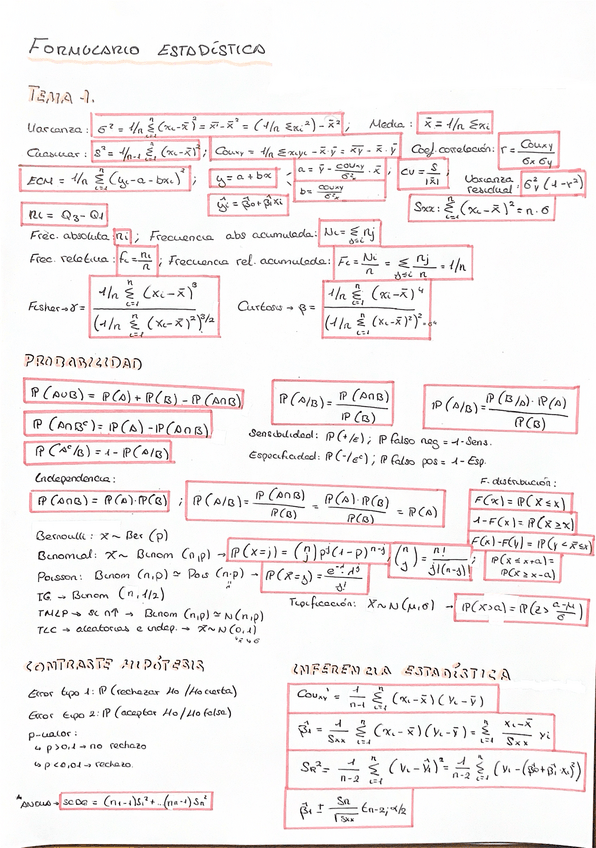 FORMULARIO ESTADÍSTICA
TEMA 1.
Varianza: σ² = 1/n Σ(xi-x̄)² = x̄²-x̄² = (1/n Σxi²) - x̄² ; Media: x̄ = 1/n Σxi
Cuasivar: S² = 1/n-1 Σ(xi-x̄)² ; Covxy = 1/n Σxiyi - x̄·ȳ = xy - x̄·ȳ Coef. correlación: r = Covxy / σx σy
ECM = 1/n Σ(yi-a-bxi)² ; y = a + bx a = ȳ - Covxy/σ²x · x̄ CV = S/|x̄| Varianza residual: σ²y (1-r²)
ŷi = β̂0 + β̂1xi b = Covxy/σ²x Sxx: Σ(xi-x̄)² = n·σ
RI = Q3 - Q1
Frec. absoluta: ni ; Frecuencia abs acumulada: Ni = Σ nj
Frec. relativa: fi = ni/n ; Frecuencia rel. acumulada: Fi = Ni/n = Σ nj/n = 1/n
Fisher → γ = 1/n Σ(xi-x̄)³ / (1/n Σ(xi-x̄)²)^3/2 Curtosis → β = 1/n Σ(xi-x̄)⁴ / (1/n Σ(xi-x̄)²)² = σ⁴
PROBABILIDAD
IP(A∪B) = IP(A) + IP(B) - IP(A∩B) IP(A/B) = IP(A∩B) / IP(B) IP(A/B) = IP(B/A)·IP(A) / IP(B)
IP(A∩Bᶜ) = IP(A) - IP(A∩B) Sensibilidad: IP(+/e) ; IP falso neg = 1-Sens.
IP(Aᶜ/B) = 1 - IP(A/B) Especificidad: IP(-/eᶜ) ; IP falso pos = 1-Esp.
Independencia: F. distribución:
IP(A∩B) = IP(A)·IP(B) ; IP(A/B) = IP(A∩B)/IP(B) = IP(A)·IP(B)/IP(B) = IP(A) F(x) = IP(X≤x)
1-F(x) = IP(X≥x)
Bernoulli: X ~ Ber (p) F(x)-F(y) = IP(y<X≤x)
Binomial: X ~ Binom (n,p) → IP(X=j) = (n j) pʲ(1-p)ⁿ⁻ʲ ; (n j) = n! / j!(n-j)! ; IP(X≤x+a) = IP(X≥x-a)
Poisson: Binom (n,p) ≃ Pois (n·p) → IP(X=j) = e^-λ·λʲ / j!
TG → Binom (n, 1/2) Tipificación: X ~ N(μ,σ) → IP(X>a) = IP(Z> a-μ/σ)
TMLP → si n↑ → Binom (n,p) ≃ N(n,p)
TLC → aleatorias e indep. → X ~ N(0,1)
CONTRASTE HIPÓTESIS
Error tipo 1: IP (rechazar H0/H0 cierta)
Error tipo 2: IP (aceptar H0/H0 falsa)
p-valor:
↳ p>0,1 → no rechazo
↳ p<0,01 → rechazo.
*ANOVA → SCDG = (n1-1)S1² + ...(nn-1)Sn²
INFERENCIA ESTADÍSTICA
Covxy' = 1/n-1 Σ(xi-x̄)(yi-ȳ)
β̂1 = 1/Sxx Σ(xi-x̄)(yi-ȳ) = Σ xi-x̄/Sxx yi
SR² = 1/n-2 Σ(yi-ŷi)² = 1/n-2 Σ(yi-(β̂0+β̂1·xi))²
β̂1 ± SR/√Sxx tn-2;α/2